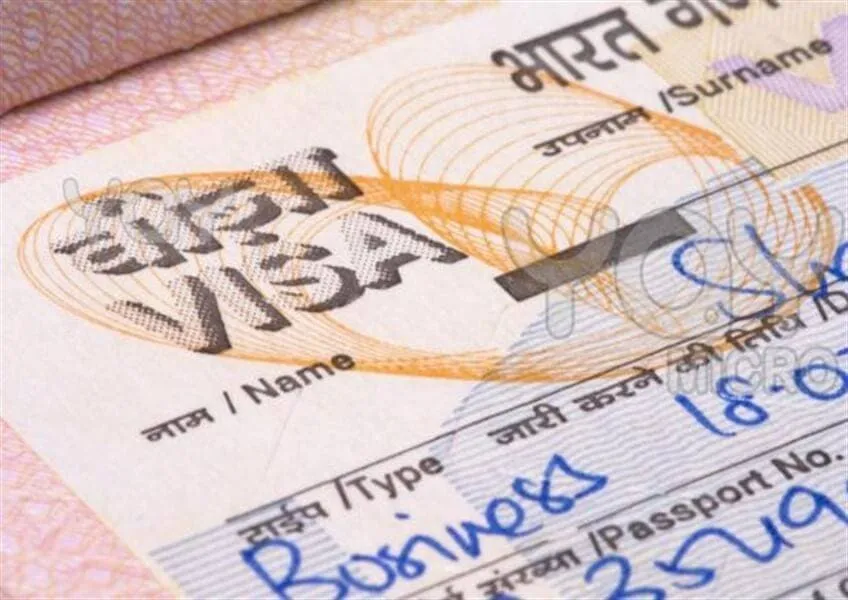 भारत
उपनाम /Surname
वीज़ा
VISA
नाम / Name
जारी करने की तिथि
18-0
टाईप /Type
Business
संख्या /Passport No.
YAY
MICRO